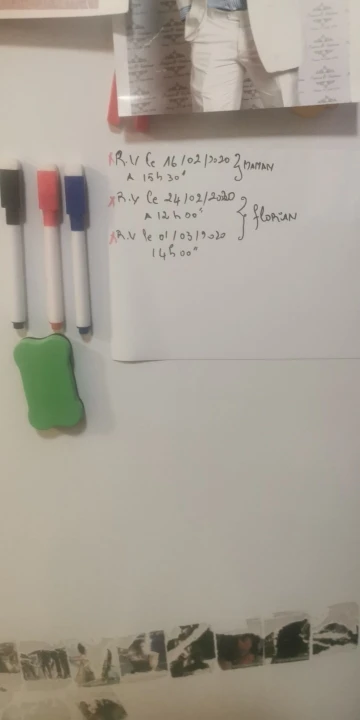 R.V le 16/02/2020 } MAMAN
A 15h30"
R.V le 24/02/2020
A 12h00" } FLORIAN
R.V le 01/03/2020
14h00"